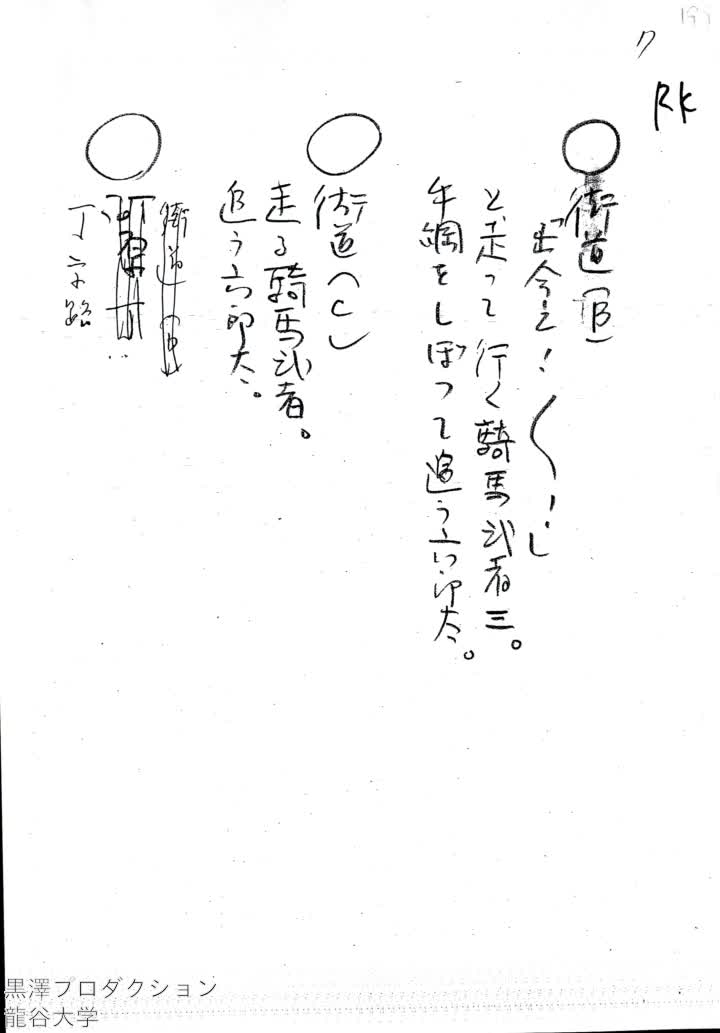 7
RK
○街道(B)
「出合え! 〱!」
と走って行く騎馬武者三。
手綱をしぼって追う六郎太。
○街道(C)
走る騎馬武者。
追う六郎太。
○街道(
丁字路
黒澤プロダクション
龍谷大学